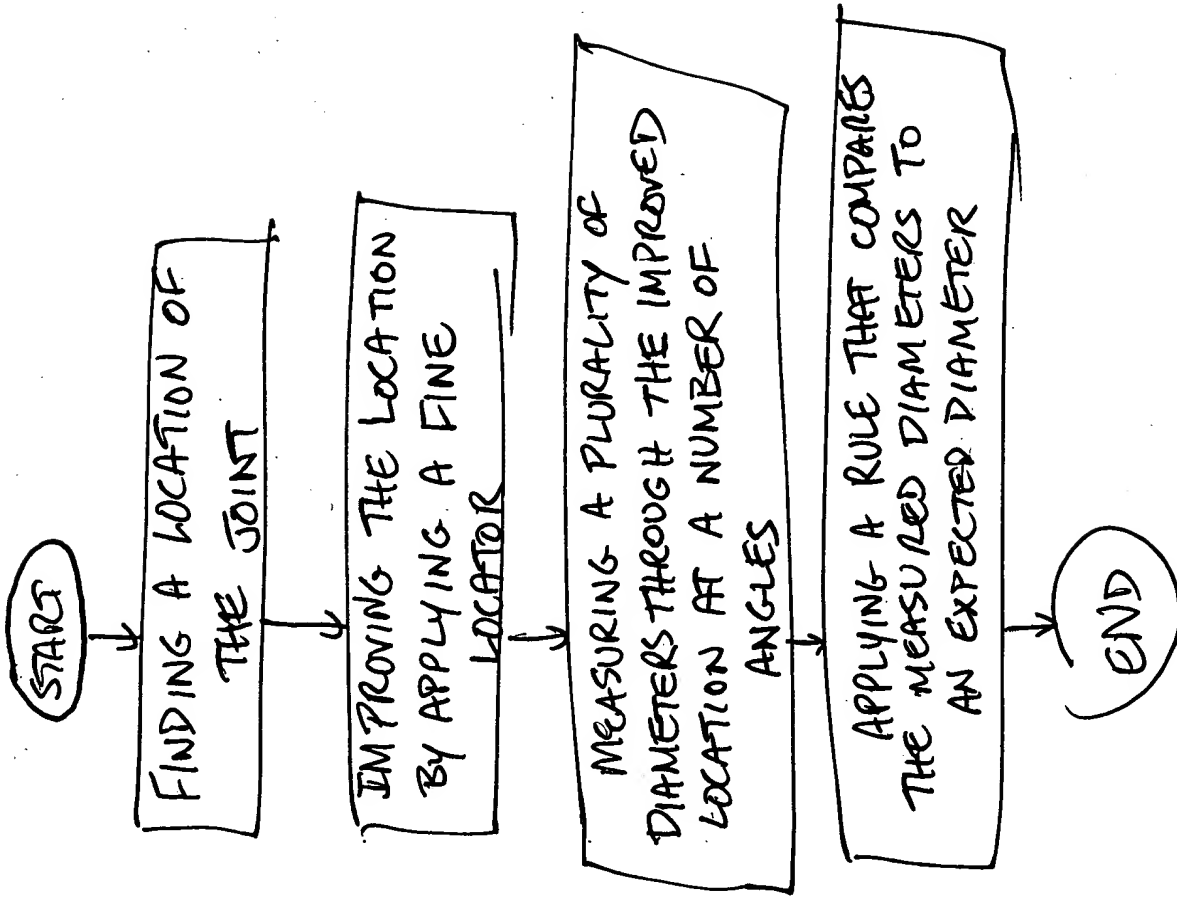 START
FINDING A LOCATION OF
THE JOINT
IMPROVING THE LOCATION
BY APPLYING A FINE
LOCATOR
MEASURING A PLURALITY OF
DIAMETERS THROUGH THE IMPROVED
LOCATION AT A NUMBER OF
ANGLES
APPLYING A RULE THAT COMPARES
THE MEASURED DIAMETERS TO
AN EXPECTED DIAMETER
END